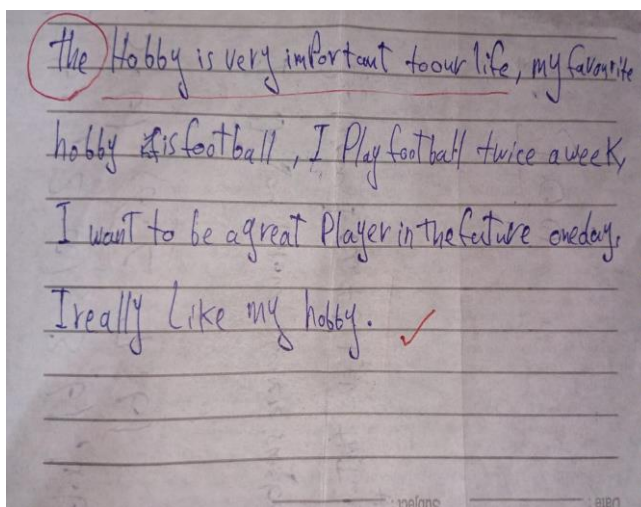 the Hobby is very important to our life, my favourite
hobby is football, I Play football twice a week,
I want to be a great Player in the future one day,
I really Like my hobby.